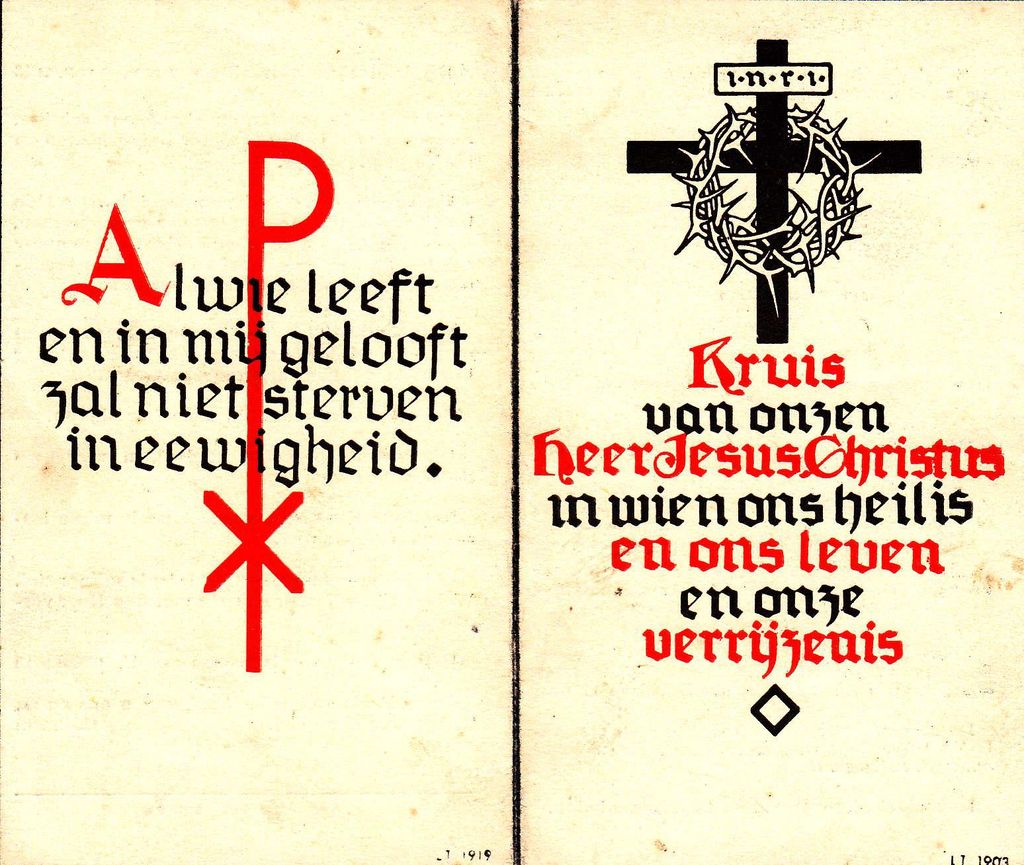 Alwie leeft
en in mij gelooft
zal niet sterven
in eewigheid.
J 1919
i·n·r·i·
Kruis
van onzen
Heer Jesus Christus
in wien ons heil is
en ons leven
en onze
verrijzenis
1903